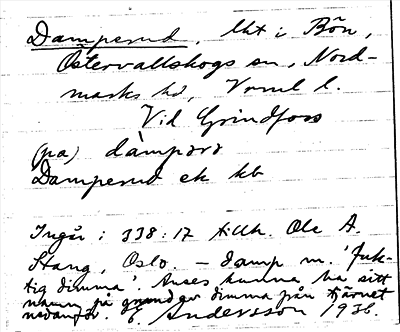 Damperud. Uht i Bön,
Östervallskogs sn, Nord-
marks hd, Vrml l.
Vid Grindfors
(på) dàmpərə
Damperud ek kb
Ingår i 338:17 tillh. Ole A.
Stang, Oslo – damp m. 'fuk-
tig dimma'. Anses kunna ha sitt
namn på grund av dimma från tjärnet
nedanför. E. Andersson 1936.